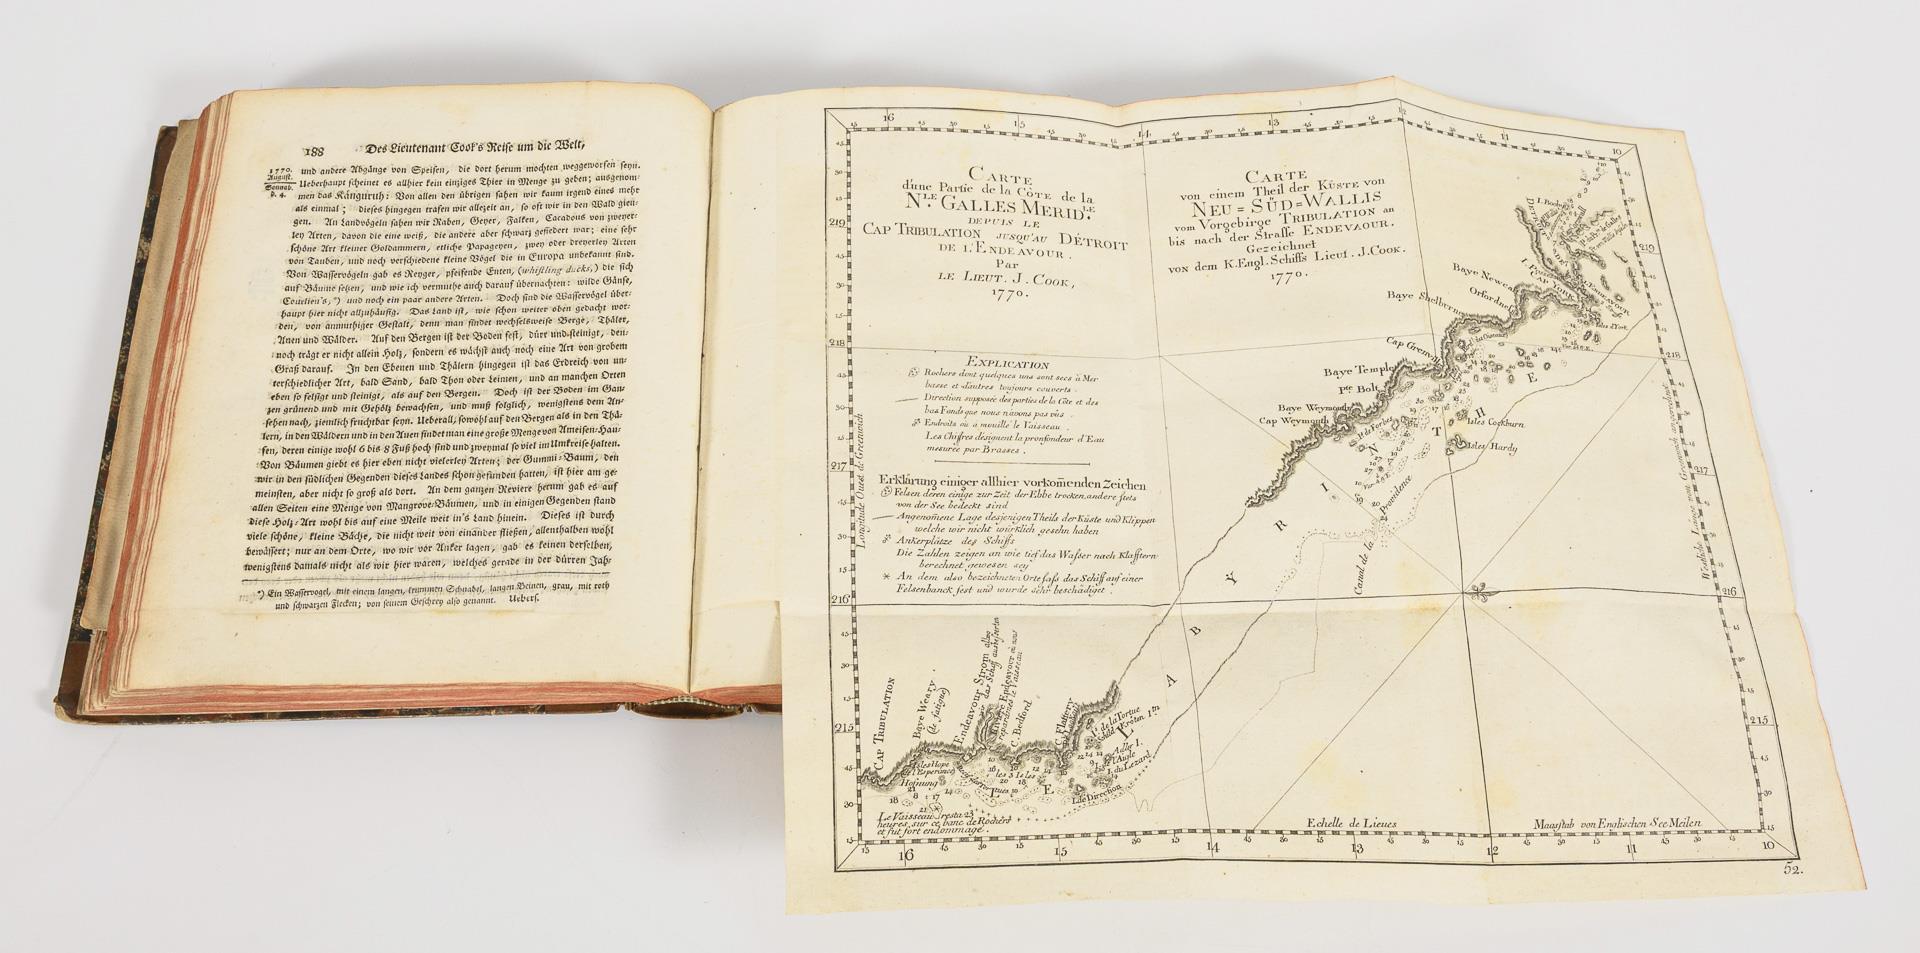 188 Des Lieutenant Cook's Reise um die Welt,
1770.
August.
Sonnab.
d. 4.
und andere Abgänge von Speisen, die dort herum mochten weggeworfen seyn.
Ueberhaupt scheinet es allhier kein einziges Thier in Menge zu geben; ausgenom-
men das Känguruh: Von allen den übrigen sahen wir kaum irgend eines mehr
als einmal; dieses hingegen trafen wir allezeit an, so oft wir in den Wald gien-
gen. An Landvögeln sahen wir Raben, Geyer, Falken, Cacadous von zweyer-
ley Arten, davon die eine weiß, die andere aber schwarz gefiedert war; eine sehr
schöne Art kleiner Goldammern, etliche Papageyen, zwey oder dreyerley Arten
von Tauben, und noch verschiedene kleine Vögel die in Europa unbekannt sind.
Von Wasservögeln gab es Reyger, pfeifende Enten, (whistling ducks,) die sich
auf Bäume setzen, und wie ich vermuthe auch darauf übernachten: wilde Gänse,
Courlieu's, *) und noch ein paar andere Arten. Doch sind die Wasservögel über-
haupt hier nicht allzuhäufig. Das Land ist, wie schon weiter oben gedacht wor-
den, von anmuthiger Gestalt, denn man findet wechselsweise Berge, Thäler,
Auen und Wälder. Auf den Bergen ist der Boden fest, dürr und steinigt, den-
noch trägt er nicht allein Holz, sondern es wächst auch noch eine Art von grobem
Graß darauf. In den Ebenen und Thälern hingegen ist das Erdreich von un-
terschiedlicher Art, bald Sand, bald Thon oder Leimen, und an manchen Orten
eben so felsigt und steinigt, als auf den Bergen. Doch ist der Boden im Gan-
zen grünend und mit Gehölz bewachsen, und muß folglich, wenigstens dem An-
sehen nach, ziemlich fruchtbar seyn. Ueberall, sowohl auf den Bergen als in den Thä-
lern, in den Wäldern und in den Auen findet man eine große Menge von Ameisen-Hau-
fen, deren einige wohl 6 bis 8 Fuß hoch sind und zweymal so viel im Umkreise halten.
Von Bäumen giebt es hier eben nicht vielerley Arten; der Gummi-Baum, den
wir in den südlichen Gegenden dieses Landes schon gefunden hatten, ist hier am ge-
meinsten, aber nicht so groß als dort. An dem ganzen Reviere herum gab es auf
allen Seiten eine Menge von Mangrove-Bäumen, und in einigen Gegenden stand
diese Holz-Art wohl bis auf eine Meile weit in's Land hinein. Dieses ist durch
viele schöne, kleine Bäche, die nicht weit von einander fließen, allenthalben wohl
bewässert; nur an dem Orte, wo wir vor Anker lagen, gab es keinen derselben,
wenigstens damals nicht als wir hier waren, welches gerade in der dürren Jahr-
*) Ein Wasservogel, mit einem langen, krummen Schnabel, langen Beinen, grau, mit roth
und schwarzen Flecken; von seinem Geschrey also genannt. Uebers.
CARTE
d'une Partie de la CÔTE de la
NLE. GALLES MERID.LE
DEPUIS LE
CAP TRIBULATION JUSQU'AU DÉTROIT
DE L'ENDEAVOUR.
Par
LE LIEUT. J. COOK,
1770.
CARTE
von einem Theil der KÜSTE von
NEU=SÜD=WALLIS
vom Vorgebirge TRIBULATION an
bis nach der Strasse ENDEVAOUR.
Gezeichnet
von dem K. Engl. Schiffs Lieut. J. COOK.
1770.
EXPLICATION
Rochers dont quelques uns sont secs à Mer
basse et d'autres toujours couverts.
Direction supposée des parties de la Côte et des
bas Fonds que nous n'avons pas vûs.
Endroits où a mouillé le Vaisseau.
Les Chiffres désignent la pronfondeur d'Eau
mesurée par Brasses.
Erklärung einiger allhier vorkomenden Zeichen
Felsen deren einige zur Zeit der Ebbe trocken, andere stets
von der See bedeckt sind
Angenomene Lage desjenigen Theils der Küste und Klippen
welche wir nicht würklich gesehn haben
Ankerplätze des Schiffs
Die Zahlen zeigen an wie tief das Wasser nach Klafftern
berechnet gewesen sey
* An dem also bezeichneten Orte sass das Schiff auf einer
Felsenbanck fest und wurde sehr beschädiget.
Longitude Ouest de Greenwich
DETROIT DE
CAP YORK
Baye Newcastle
Orfordness
Baye Shelburne
Cap Grenville
Isles d'York
Baye Temple
Pte. Bolt
Baye Weymouth
Cap Weymouth
Is. de Forbes
Isles Cockburn
Isles Hardy
Canal de la Providence
LABYRINTHE
CAP TRIBULATION
Baye Weary
(de fatigue)
Endeavour Strom allwo
das Schiff ausgebessert
Rivière Endeavour où nous
reparames le Vaisseau
C. Bedford
C. Flattery
Is. de la Tortue
Adler I.
I. de l'Aigle
I. du Lezard
I. de Direction
les 3 Isles
Isles Hope
de l'Esperance
Hofnung
Le Vaisseau resta 23
heures, sur ce banc de Rochers
et fut fort endommagé.
Echelle de Lieues
Maasstab von Englischen See Meilen
Westliche Länge von Greenwich angerechnet
16 15 14 13 12 11 10
219 218 217 216 215
52.